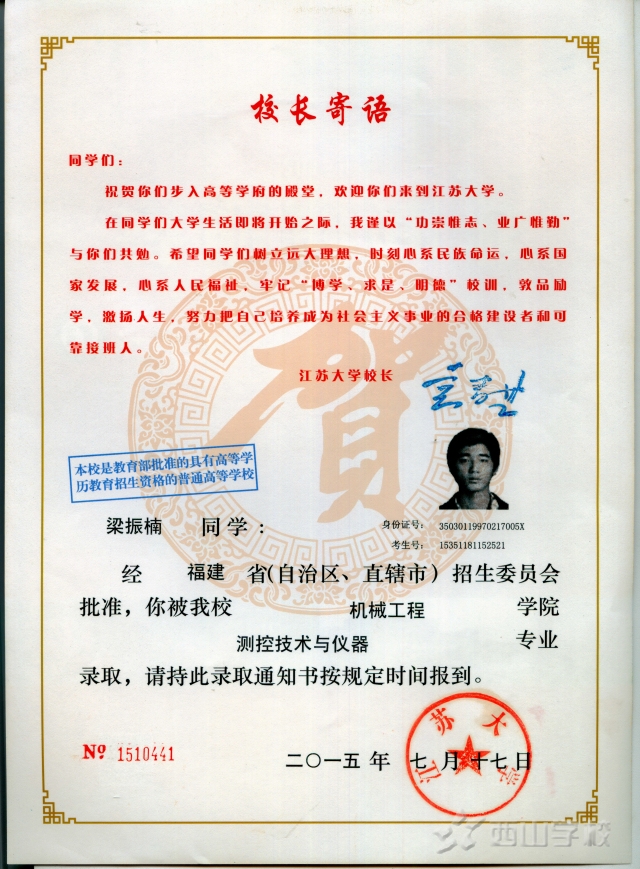 校长寄语
同学们：
祝贺你们步入高等学府的殿堂，欢迎你们来到江苏大学。
在同学们大学生活即将开始之际，我谨以“功崇惟志、业广惟勤”
与你们共勉。希望同学们树立远大理想，时刻心系民族命运，心系国
家发展，心系人民福祉，牢记“博学、求是、明德”校训，敦品励
学，激扬人生，努力把自己培养成为社会主义事业的合格建设者和可
靠接班人。
江苏大学校长
贺
本校是教育部批准的具有高等学
历教育招生资格的普通高等学校
梁振楠 同学：
身份证号： 35030119970217005X
考生号： 15351181152521
经 福建 省(自治区、直辖市）招生委员会
批准，你被我校 机械工程 学院
测控技术与仪器 专业
录取，请持此录取通知书按规定时间报到。
江苏大学
Nº 1510441
二〇一五 年 七 月 十七 日
西山学校